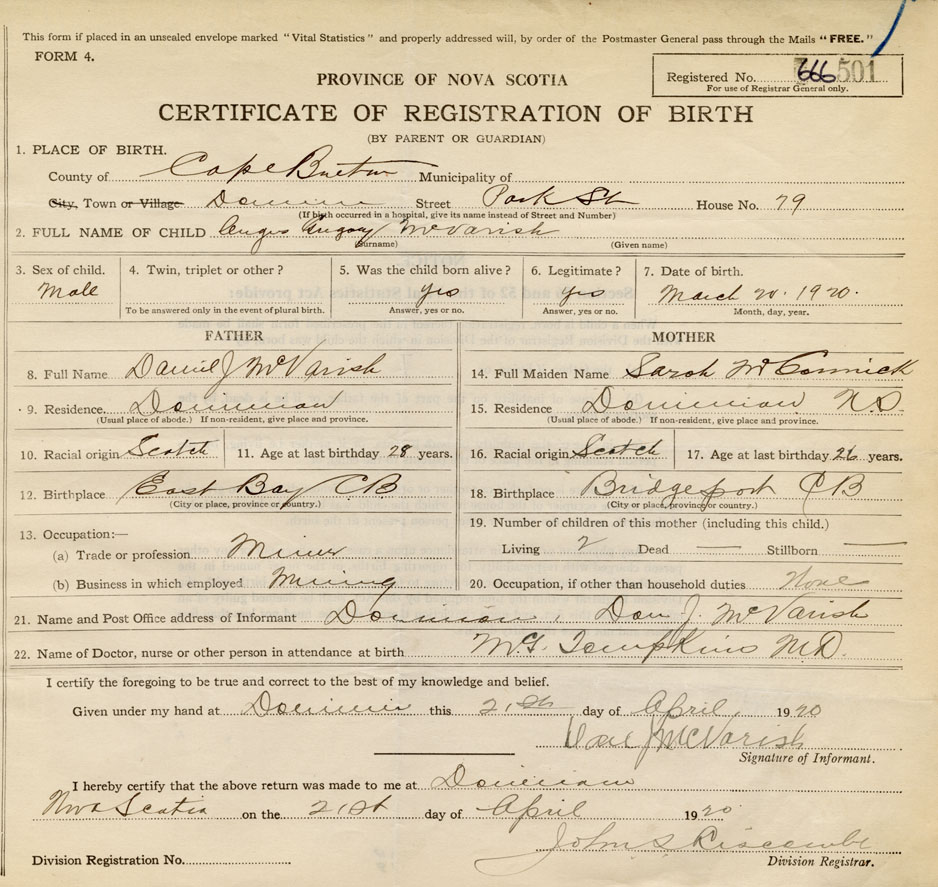 This form if placed in an unsealed envelope marked "Vital Statistics" and properly addressed will, by order of the Postmaster General pass through the Mails "FREE."
FORM 4.
PROVINCE OF NOVA SCOTIA
Registered No. 666 501
For use of Registrar General only.
CERTIFICATE OF REGISTRATION OF BIRTH
(BY PARENT OR GUARDIAN)
1. PLACE OF BIRTH.
County of Cape Breton Municipality of
City, Town or Village Dominion Street Park St House No. 79
(If birth occurred in a hospital, give its name instead of Street and Number)
2. FULL NAME OF CHILD Angus Gregory McVarish
(Surname) (Given name)
3. Sex of child. 4. Twin, triplet or other? 5. Was the child born alive? 6. Legitimate? 7. Date of birth.
Male yes yes March 20. 1920.
To be answered only in the event of plural birth. Answer, yes or no. Answer, yes or no. Month, day, year.
FATHER MOTHER
8. Full Name Daniel J McVarish 14. Full Maiden Name Sarah McCormick
9. Residence. Dominion 15. Residence Dominion N.S.
(Usual place of abode.) If non-resident, give place and province. (Usual place of abode.) If non-resident, give place and province.
10. Racial origin Scotch 11. Age at last birthday 28 years. 16. Racial origin Scotch 17. Age at last birthday 26 years.
12. Birthplace East Bay CB 18. Birthplace Bridgeport CB
(City or place, province or country.) (City or place, province or country.)
13. Occupation:— 19. Number of children of this mother (including this child.)
(a) Trade or profession. Miner Living 2 Dead — Stillborn —
(b) Business in which employed Mining 20. Occupation, if other than household duties None
21. Name and Post Office address of Informant Dominion, Dan J. McVarish
22. Name of Doctor, nurse or other person in attendance at birth M.G. Tompkins M.D.
I certify the foregoing to be true and correct to the best of my knowledge and belief.
Given under my hand at Dominion this 21st day of April 1920
Dan J McVarish
Signature of Informant.
I hereby certify that the above return was made to me at Dominion
Nova Scotia on the 21st day of April 1920
John S
Division Registration No. Division Registrar.